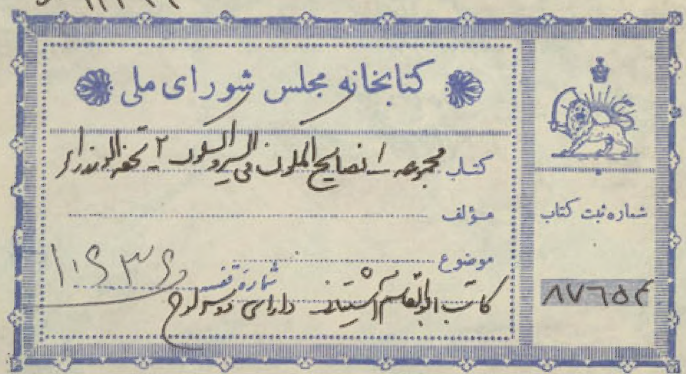 کتابخانه مجلس شورای ملی
کتاب مجموعه ۱ـ نصایح الملوک فی السیر و السلوک ۲ـ تحفه الوزراء
مؤلف
موضوع
شماره قفسه ۱۰۶۳۶
کاتب ابوالقاسم آشتیانی دارای دو سرلوح
شماره ثبت کتاب
۸۷۶۵۲